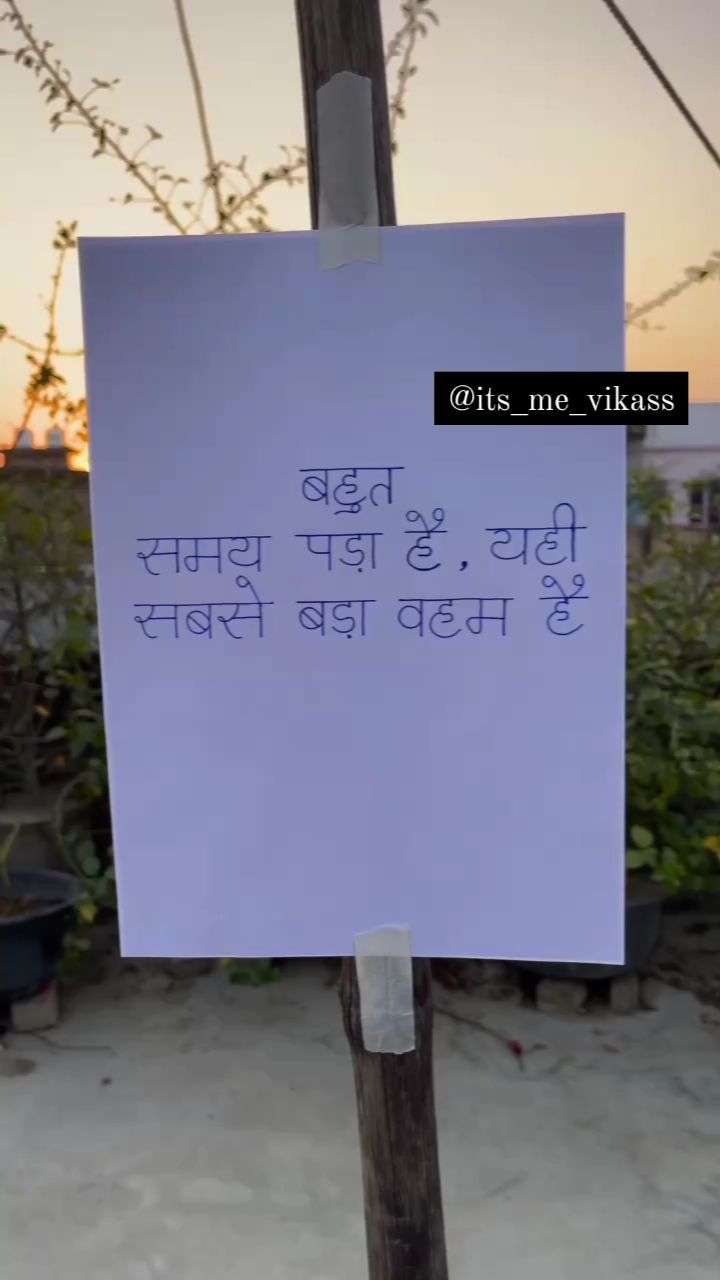 @its_me_vikass
बहुत
समय पड़ा है, यही
सबसे बड़ा वहम है